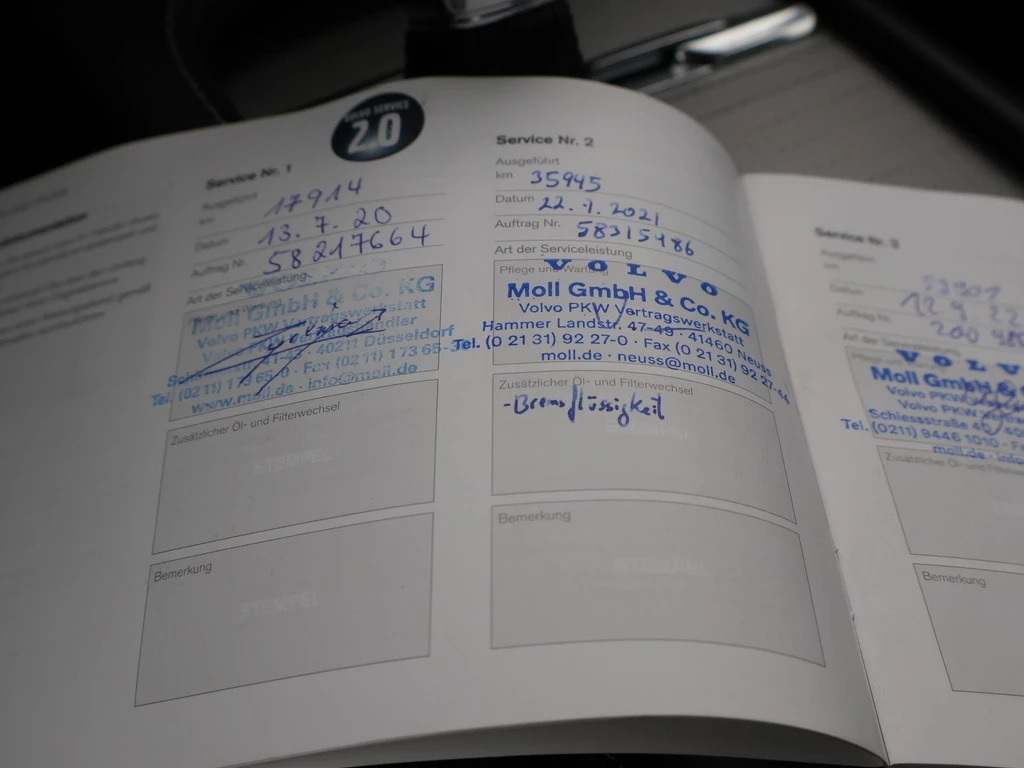 VOLVO SERVICE
2.0
Service Nr. 1
Ausgeführt
km 17914
Datum 13. 7. 20
Auftrag Nr. 58217664
Art der Serviceleistung
Moll GmbH & Co. KG
Volvo PKW Vertragswerkstatt
40211 Düsseldorf
Tel. (02 11) 1 73 65-0 · Fax (02 11) 1 73 65-3
www.moll.de · info@moll.de
Zusätzlicher Öl- und Filterwechsel
STEMPEL
Bemerkung
STEMPEL
Service Nr. 2
Ausgeführt
km 35945
Datum 22. 7. 2021
Auftrag Nr. 58315486
Art der Serviceleistung
Pflege und Wartung
VOLVO
Moll GmbH & Co. KG
Volvo PKW Vertragswerkstatt
Hammer Landstr. 47-49 · 41460 Neuss
Tel. (0 21 31) 92 27-0 · Fax (0 21 31) 92 27-44
moll.de · neuss@moll.de
Zusätzlicher Öl- und Filterwechsel
- Bremsflüssigkeit
STEMPEL
Bemerkung
STEMPEL
Service Nr. 3
Ausgeführt
km
Datum
Auftrag Nr.
VOLVO
Moll GmbH &
Volvo PKW
Volvo PKW
Schiessstraße
Tel. (0211) 9446 1010 ·
moll.de · info
Zusätzlicher Öl- und
Bemerkung